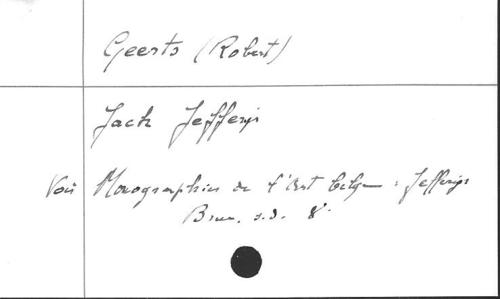 Geerts (Robert)
Jack Jefferys
Voir Monographies de l'Art belge : Jefferys
Brux. s.d. 8°